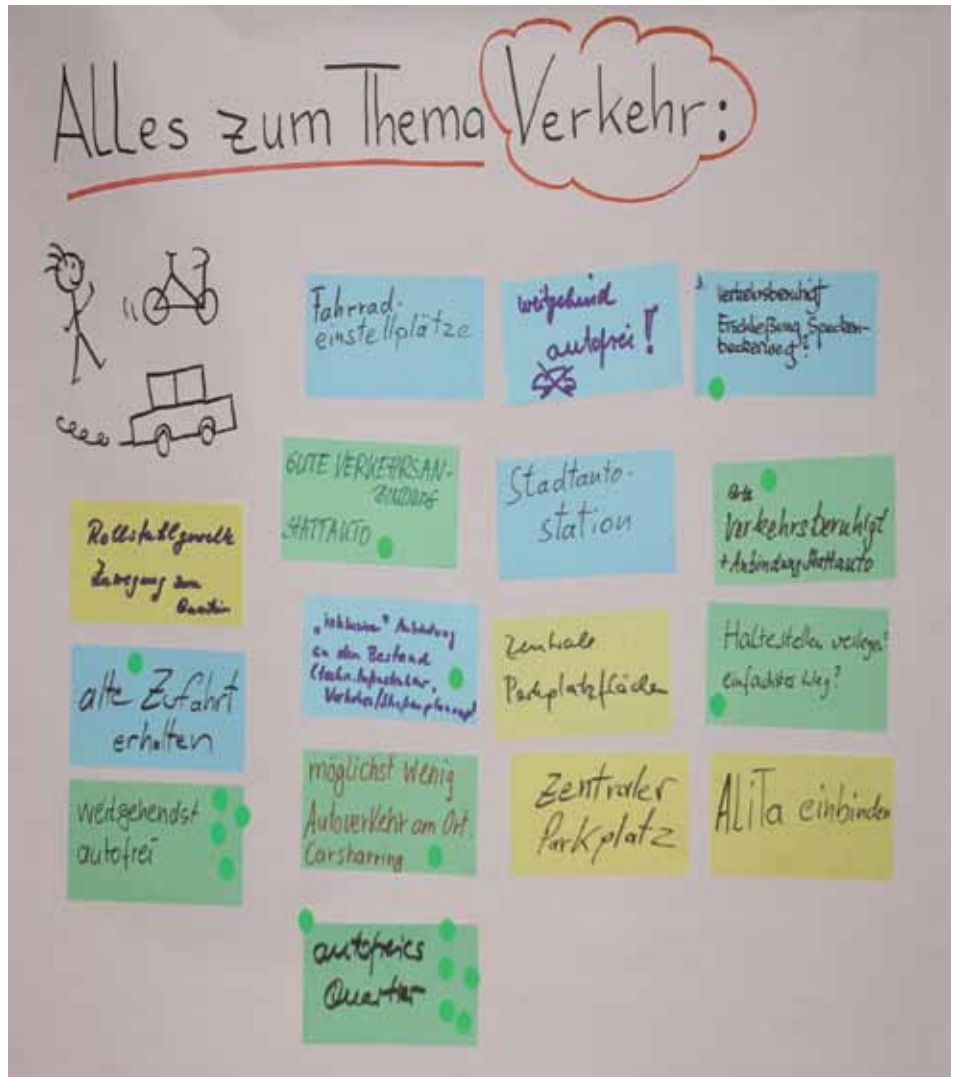 Alles zum Thema Verkehr:
Fahrrad-
einstellplätze
weitgehend
autofrei!
Verkehrsberuhigt
Erschließung Specken-
beckerweg?
GUTE VERKEHRSAN-
BINDUNG
STATTAUTO
Stadtauto-
station
Verkehrsberuhigt
+ Anbindung Stattauto
Rollstuhlgerechte
Zuwegung zum
Quartier
"inklusive" Anbindung
an den Bestand
Zentrale
Parkplatzflächen
Haltestellen verlegen?
einfachster Weg?
alte Zufahrt
erhalten
möglichst wenig
Autoverkehr am Ort
Carsharring
Zentraler
Parkplatz
AliTa einbinden
weitgehendst
autofrei
autofreies
Quartier